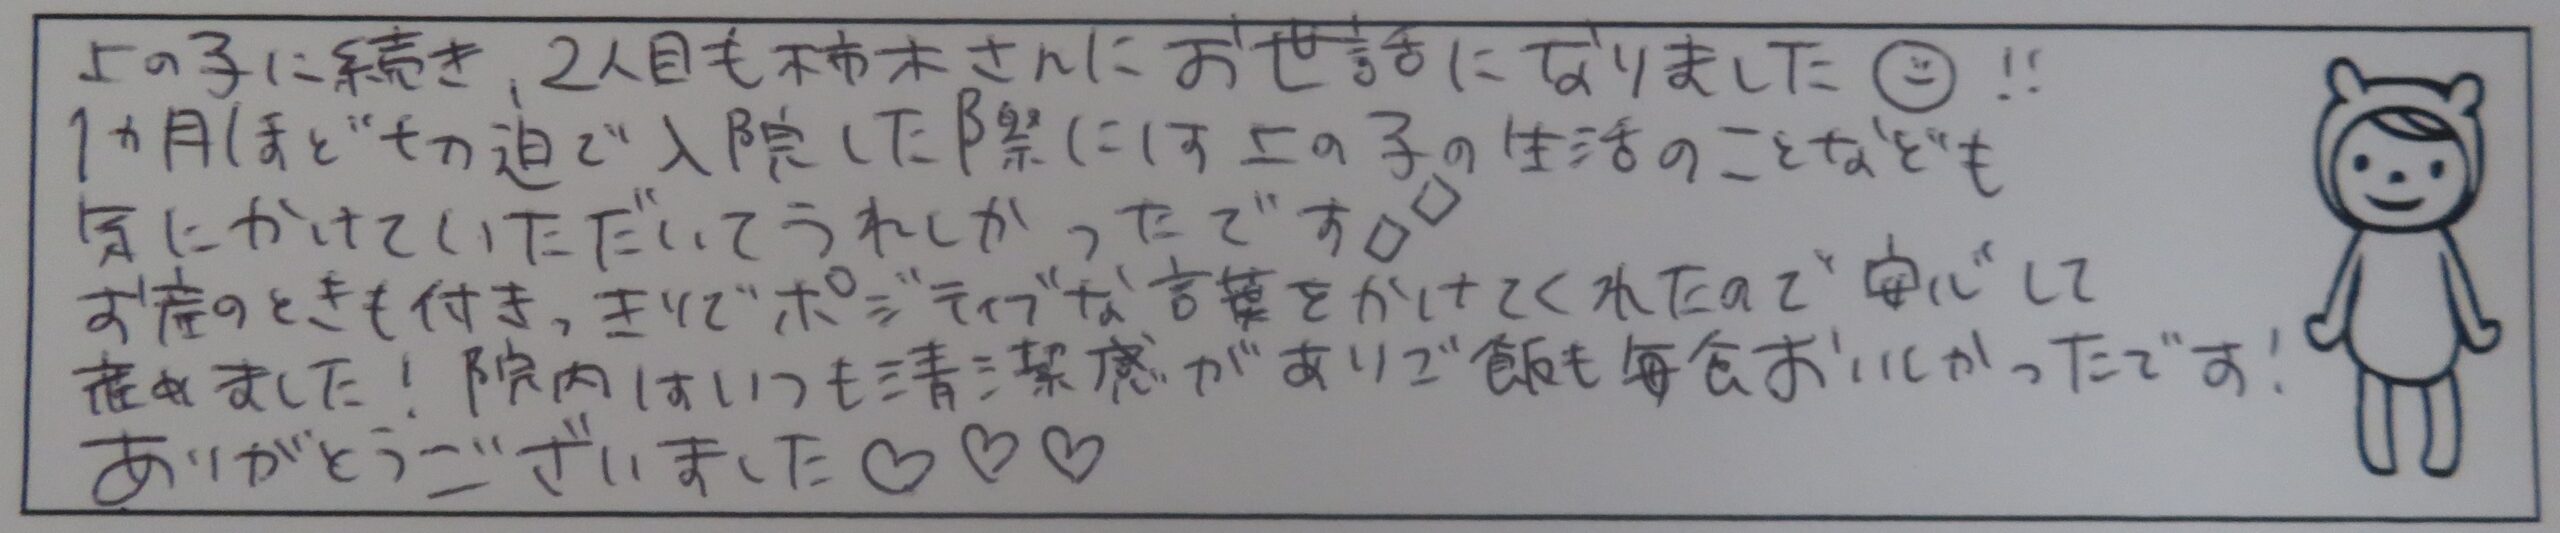 上の子に続き、2人目も柿木さんにお世話になりました!!
1カ月ほど切迫で入院した際には上の子の生活のことなども
気にかけていただいてうれしかったです
お産のときも付きっきりでポジティブな言葉をかけてくれたので安心して
産めました!院内はいつも清潔感がありご飯も毎食おいしかったです!
ありがとうございました♡♡♡